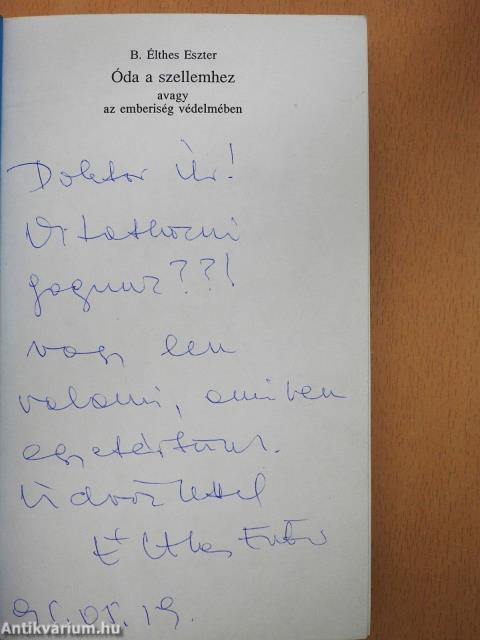 B. Élthes Eszter
Óda a szellemhez
avagy
az emberiség védelmében
Doktor Úr!
Vitatkozni
fogunk??!
vagy len
valami, amiben
egyetértünk.
Üdvözlettel
Élthes Eszter
95.05.19.
Antikvárium.hu